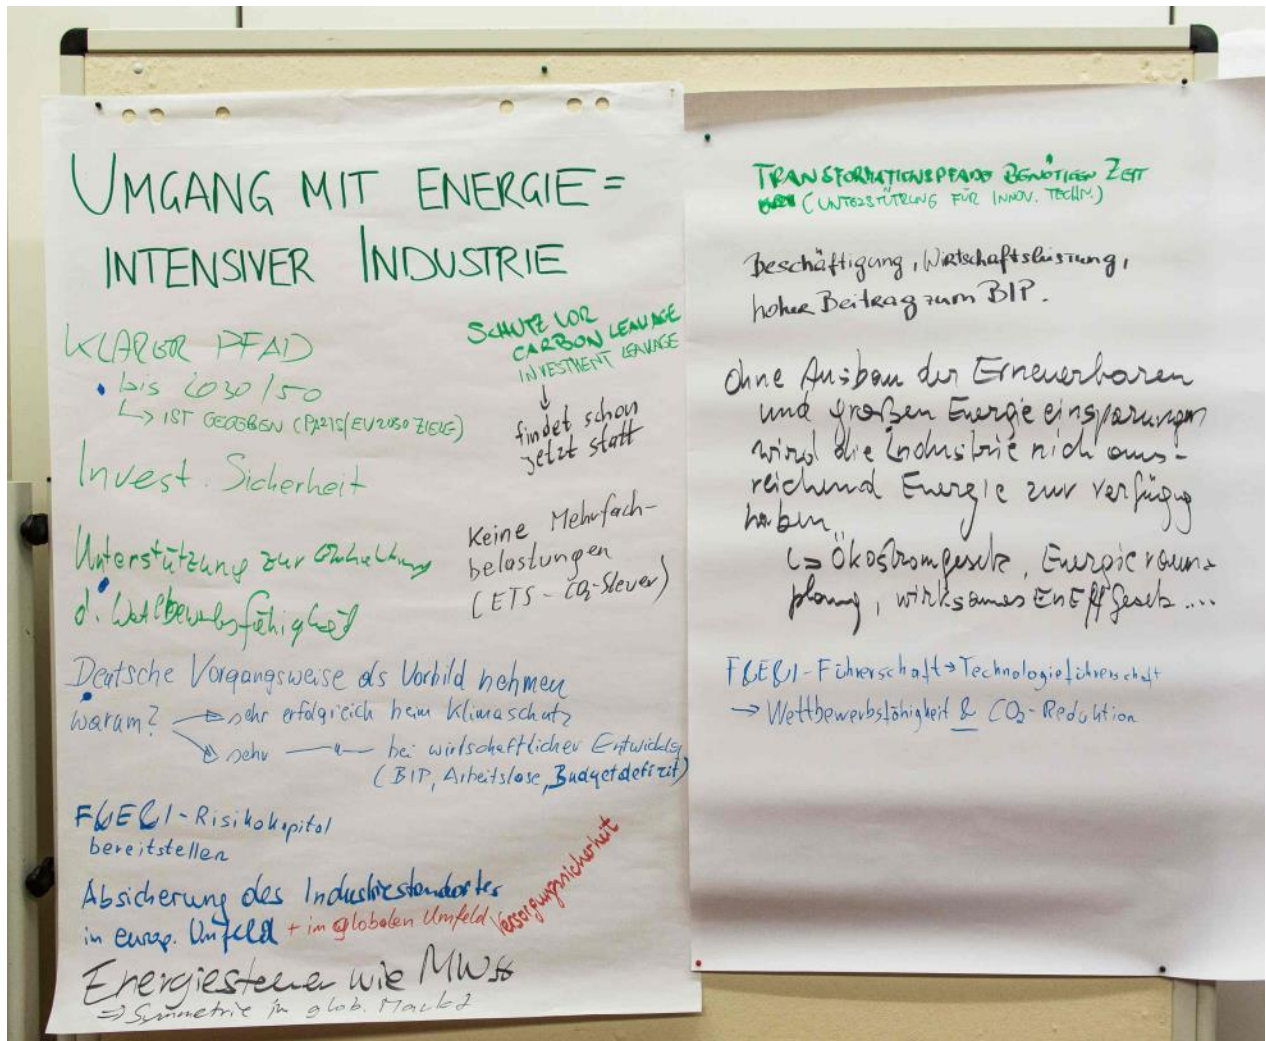 UMGANG MIT ENERGIE=
INTENSIVER INDUSTRIE
KLARER PFAD
• bis 2030/50
↳ IST GEGEBEN (PARIS/EU2050 ZIELE)
Invest. Sicherheit
Unterstützung zur Einhaltung
d. Wettbewerbsfähigkeit
SCHUTZ VOR
CARBON LEAKAGE
INVESTMENT LEAKAGE
↓
findet schon
jetzt statt
Keine Mehrfach-
belastungen
(ETS - CO₂-Steuer)
Deutsche Vorgangsweise als Vorbild nehmen
warum? → sehr erfolgreich beim Klimaschutz
→ sehr —"— bei wirtschaftlicher Entwicklg
(BIP, Arbeitslose, Budgetdefizit)
F&E&I-Risikokapital
bereitstellen
Absicherung des Industriestandortes
in europ. Umfeld + im globalen Umfeld
Versorgungssicherheit
Energiesteuer wie MWSt
⇒ Symmetrie im glob. Markt
TRANSFORMATIONSPFADE BENÖTIGEN ZEIT
(UNTERSTÜTZUNG FÜR INNOV. TECHN.)
Beschäftigung, Wirtschaftsleistung,
hoher Beitrag zum BIP.
Ohne Ausbau der Erneuerbaren
und großen Energieeinsparungen
wird die Industrie nich aus-
reichend Energie zur Verfügung
haben
↳ Ökostromgesetz, Energieraum-
planung, wirksames EnEffGesetz ....
F&E&I-Führerschaft → Technologieführerschaft
→ Wettbewerbsfähigkeit & CO₂-Reduktion